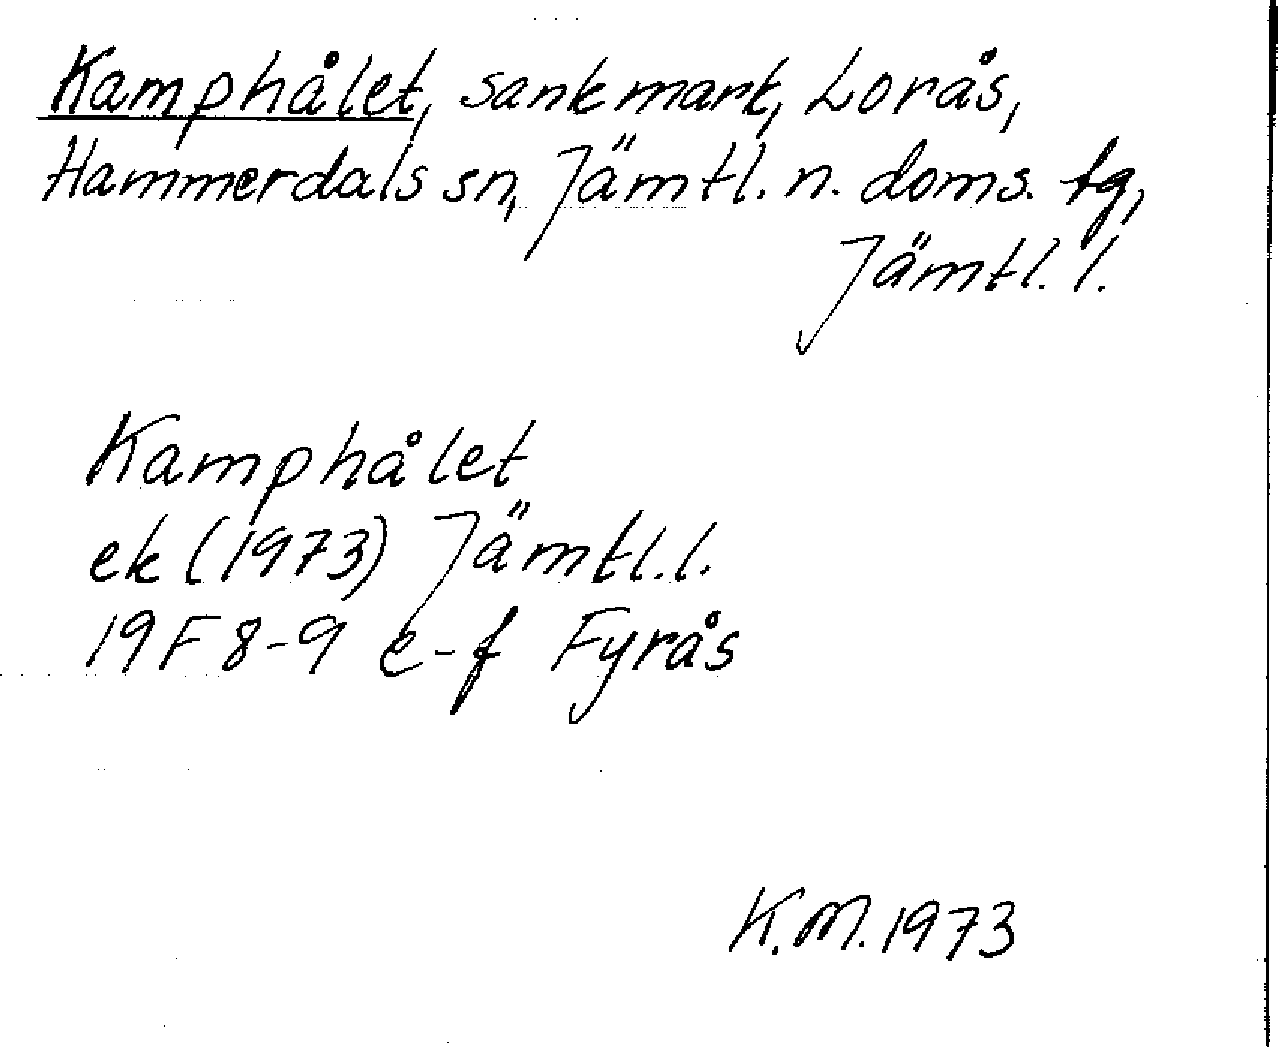 Kamphålet, sankmark, Lorås,
Hammerdals sn, Jämtl. n. doms. tg,
Jämtl. l.
Kamphålet
ek (1973) Jämtl. l.
19F 8-9 e-f Fyrås
K.M. 1973